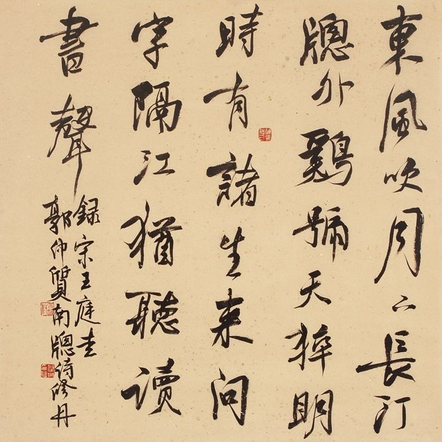 東風吹月下長汀
牕外鷄號天猝明
時有諸生来問
字隔江猶聽讀
書聲
録宋王庭圭
郭仲質南牕诗修丹